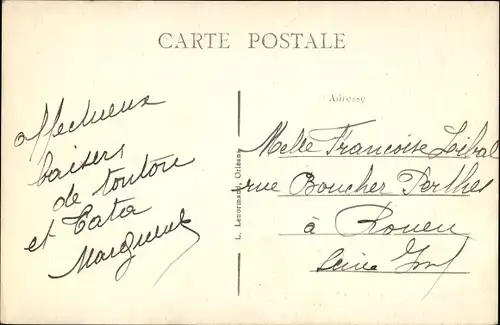 CARTE POSTALE
Adresse
affectueux
baisers
de tonton
et Tata
Marguerite
L. Lenormand, Orléans
Melle Francoise Leibal
rue Boucher Perthes
à Rouen
Seine Inf